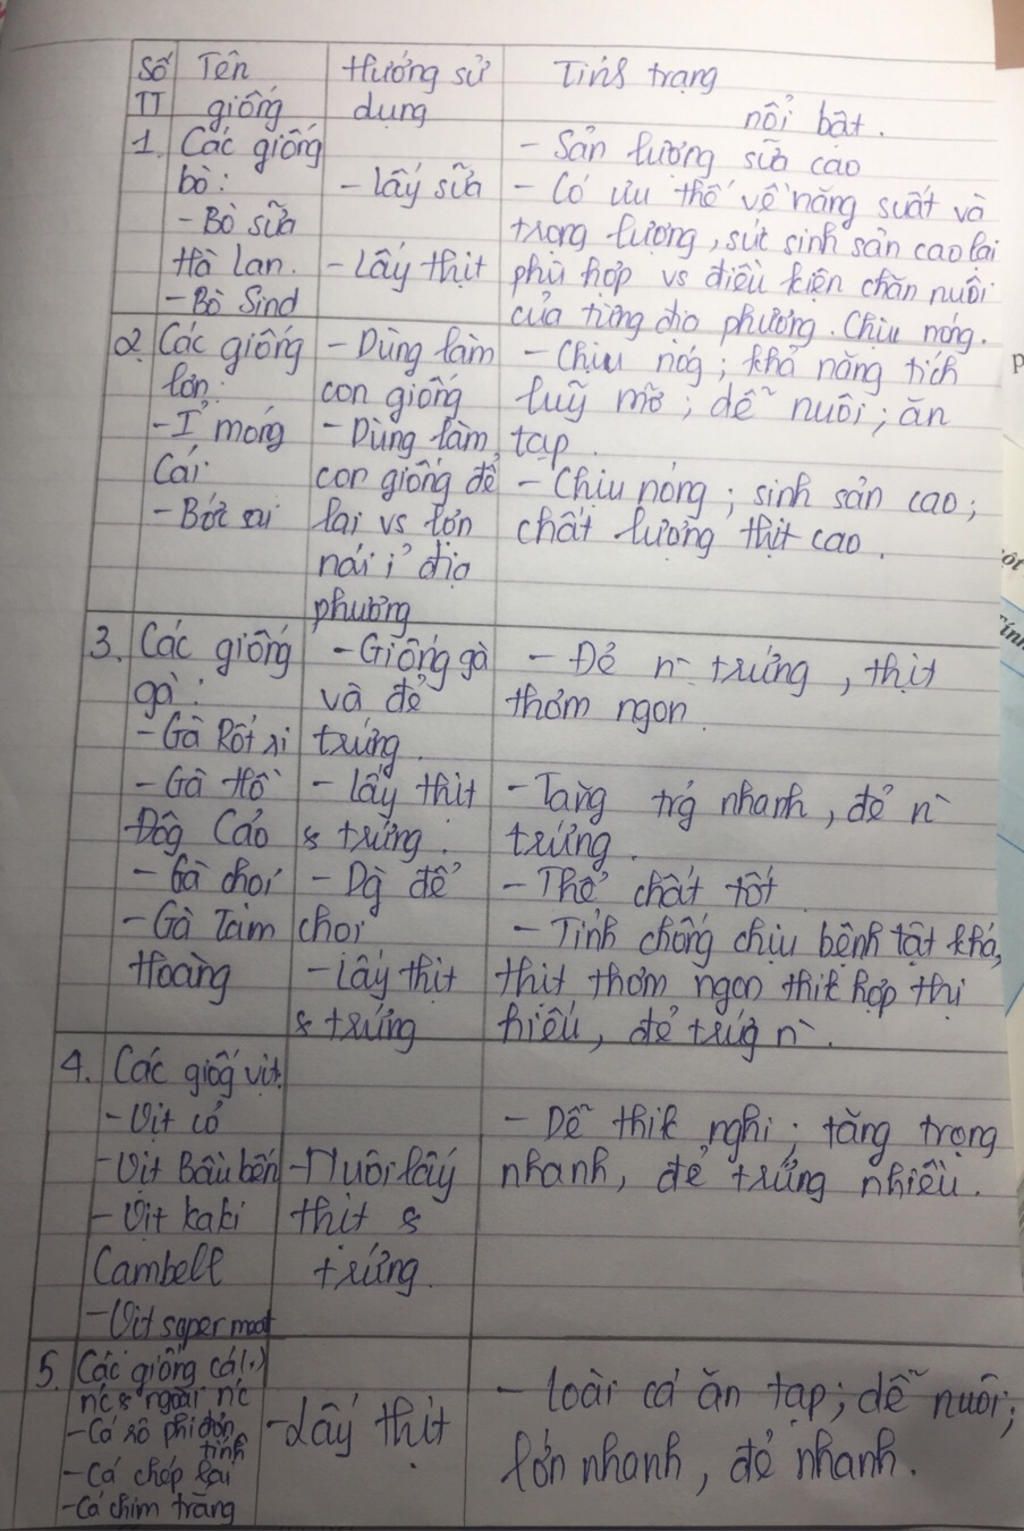 Số Tên Hướng sử Tính trạng
TT giống dụng nổi bật.
1. Các giống - Sản lượng sữa cao
bò: - Lấy sữa - Có ưu thế về năng suất và
- Bò sữa trọng lượng, sức sinh sản cao lại
Hà Lan. - Lấy thịt phù hợp vs điều kiện chăn nuôi
- Bò Sind của từng địa phương. Chịu nóng.
2. Các giống - Dùng làm - Chịu nóg; khả năng tích
lợn: con giống luỹ mỡ; dễ nuôi; ăn
- Ỉ móng - Dùng làm tạp.
Cái con giống để - Chịu nóng; sinh sản cao;
- Bớt xi lai vs lợn chất lượng thịt cao.
nái ỉ địa
phương
3. Các giống - Giống gà - Đẻ n` trứng, thịt
gà: và đẻ thơm ngon.
- Gà Rốt ri trứng.
- Gà Hồ - lấy thịt - Tăng trg nhanh, đẻ n`
Đôg Cảo & trứng. trứng.
- Gà chọi - Dg để - Thể chất tốt
- Gà Tam chọi - Tính chống chịu bệnh tật khá,
Hoàng - Lấy thịt thịt thơm ngon thik hợp thị
& trứng hiếu, đẻ trứg n`.
4. Các giốg vịt
- Vịt cỏ - Dễ thik nghi; tăng trọng
- Vịt Bầu bến - Nuôi lấy nhanh, đẻ trứng nhiều.
- Vịt kaki thịt &
Cambell trứng.
- Vịt super meat
5. Các giống cá (.) - loài cá ăn tạp; dễ nuôi;
nc & ngoài nc
- Cá rô phi đơn - Lấy thịt
tính lớn nhanh, đẻ nhanh.
- Cá chép lai
- Cá chim trắng